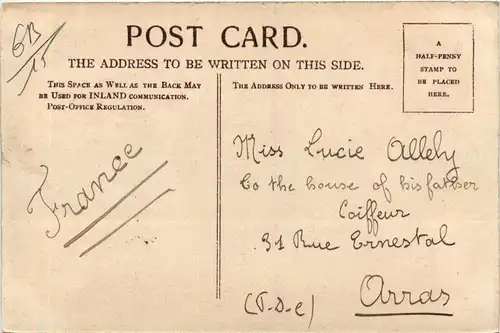 6B/15
POST CARD.
THE ADDRESS TO BE WRITTEN ON THIS SIDE.
A
HALF-PENNY
STAMP TO
BE PLACED
HERE.
THIS SPACE AS WELL AS THE BACK MAY
BE USED FOR INLAND COMMUNICATION.
POST-OFFICE REGULATION.
THE ADDRESS ONLY TO BE WRITTEN HERE.
France
Miss Lucie Allehy
To the house of his father
Coiffeur
31 Rue Ernestal
(P.D.C) Arras